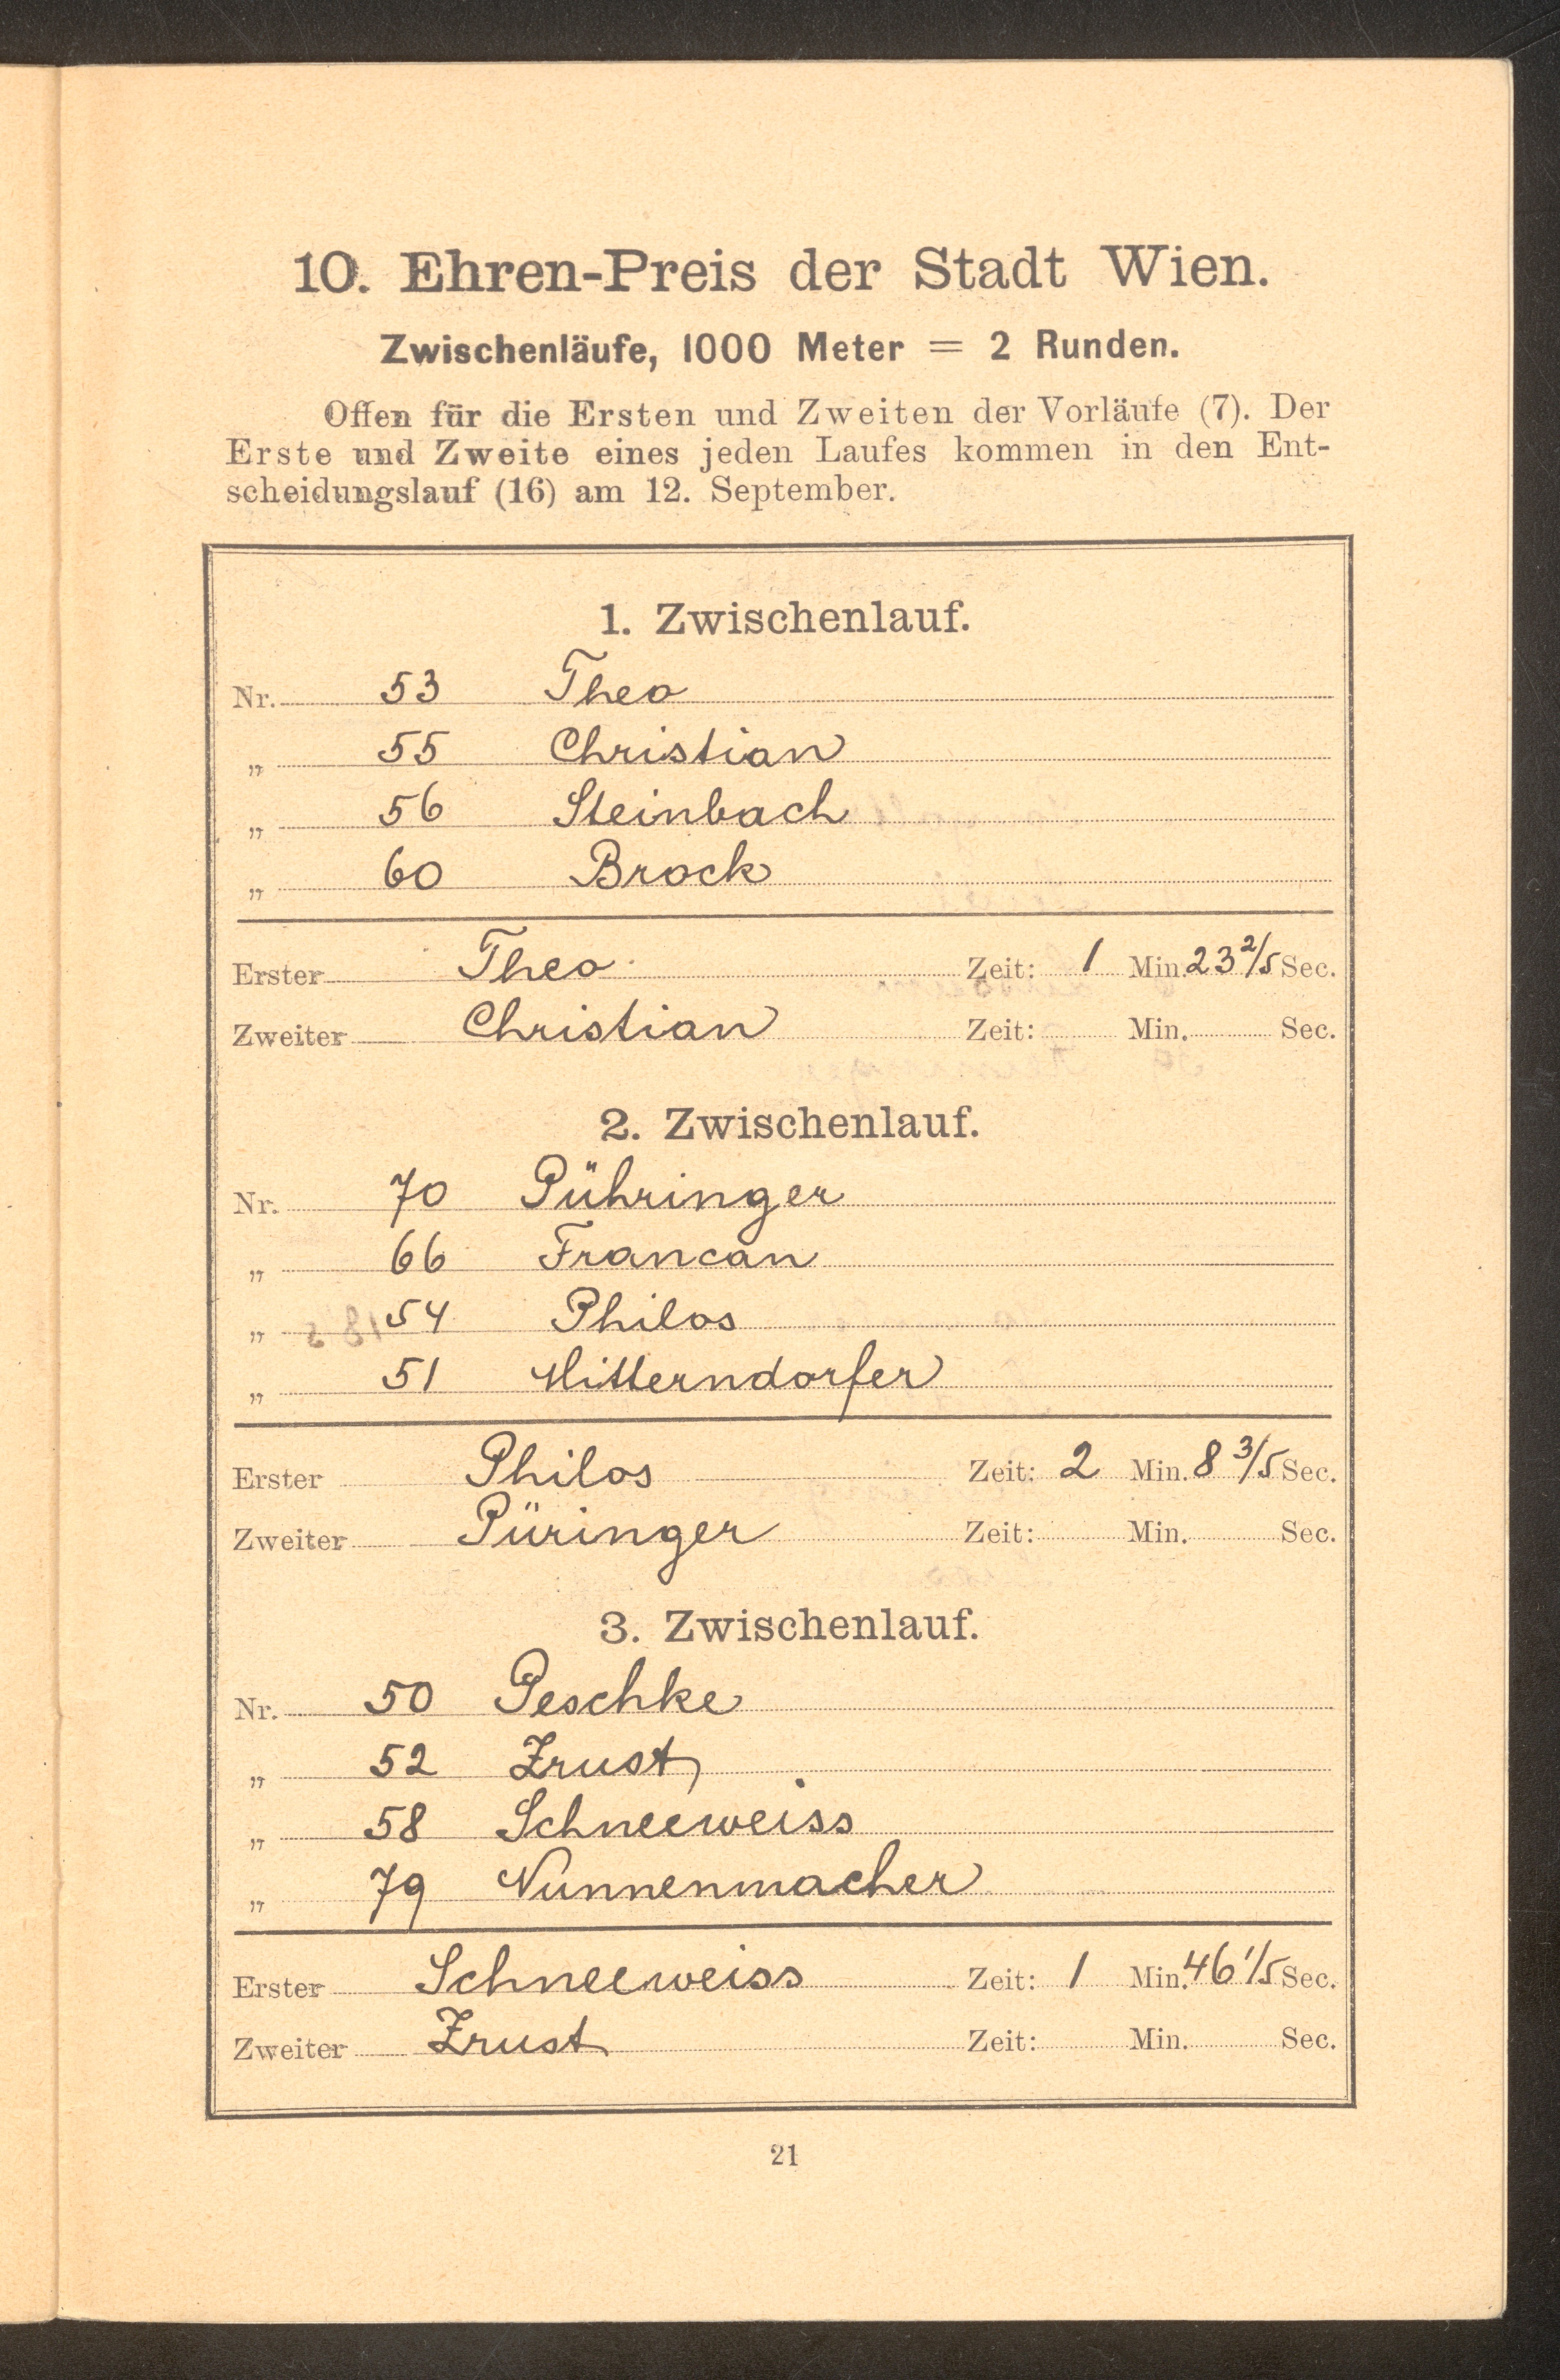 10. Ehren-Preis der Stadt Wien.
Zwischenläufe, 1000 Meter = 2 Runden.
Offen für die Ersten und Zweiten der Vorläufe (7). Der
Erste und Zweite eines jeden Laufes kommen in den Ent-
scheidungslauf (16) am 12. September.
1. Zwischenlauf.
Nr. 53 Theo
„ 55 Christian
„ 56 Steinbach
„ 60 Brock
Erster Theo Zeit: 1 Min. 23 2/5 Sec.
Zweiter Christian Zeit: Min. Sec.
2. Zwischenlauf.
Nr. 70 Pühringer
„ 66 Francan
„ 54 Philos
„ 51 Mitterndorfer
Erster Philos Zeit: 2 Min. 8 3/5 Sec.
Zweiter Püringer Zeit: Min. Sec.
3. Zwischenlauf.
Nr. 50 Peschke
„ 52 Zrust
„ 58 Schneeweiss
„ 79 Nunnenmacher
Erster Schneeweiss Zeit: 1 Min. 46 1/5 Sec.
Zweiter Zrust Zeit: Min. Sec.
21